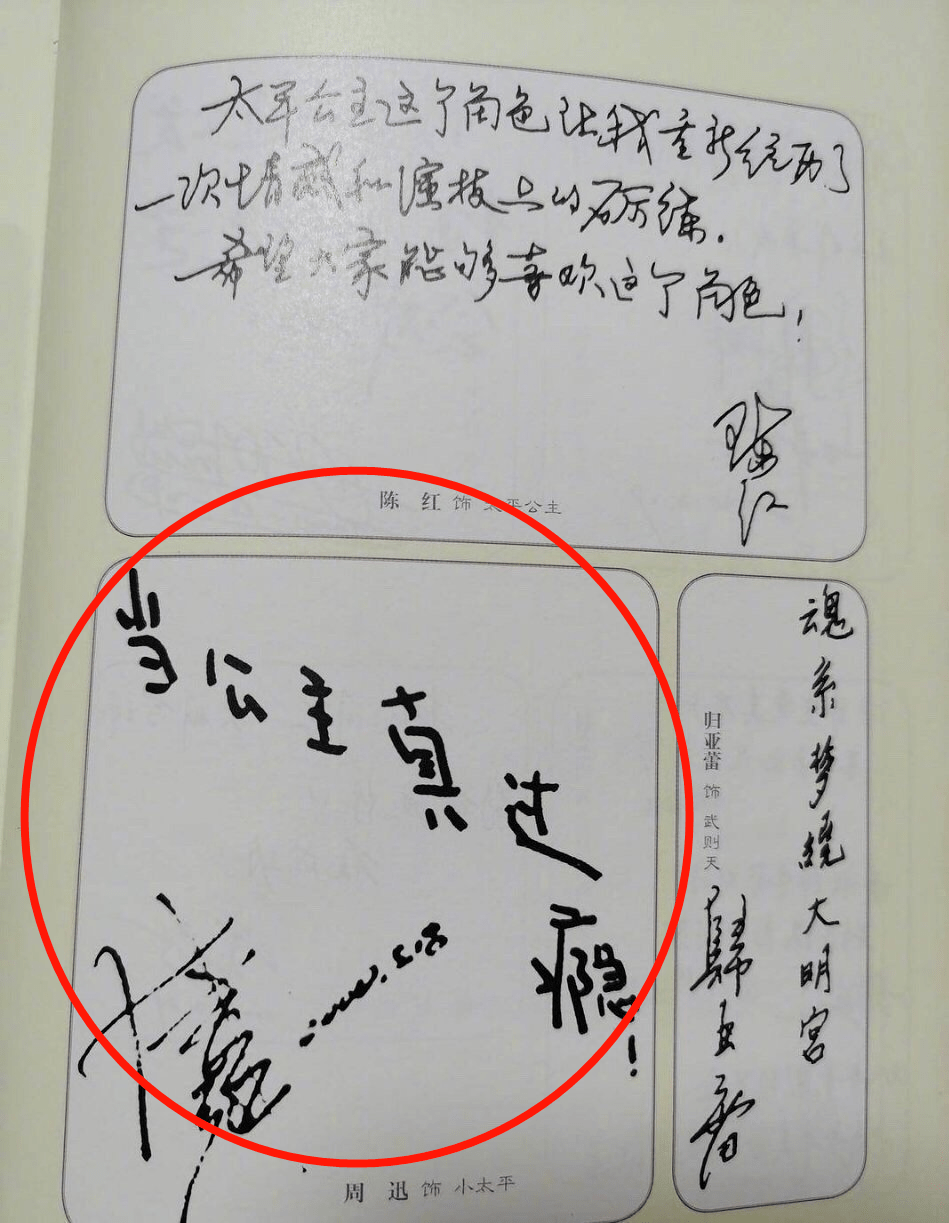 太平公主这个角色让我重新经历了
一次情感和演技上的砺练.
希望大家能够喜欢这个角色!
陈红
陈 红 饰 太平公主
当公主真过瘾!
周 迅 饰 小太平
魂系梦绕大明宫
归亚蕾 饰 武则天
歸亞蕾